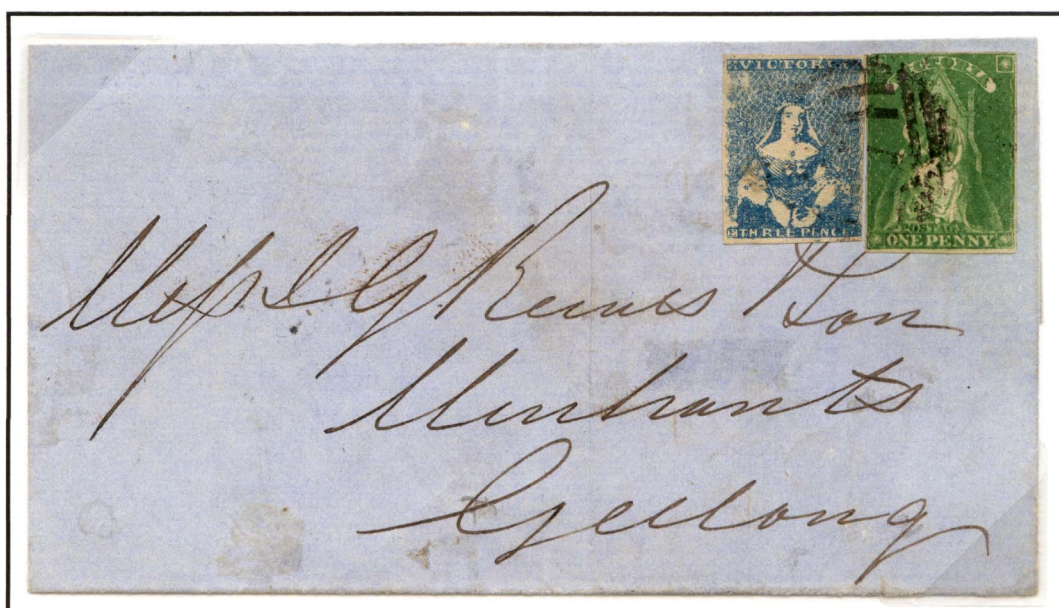 VICTORIA
THREE PENCE
VICTORIA
POSTAGE
ONE PENNY
Mess J G Reeves & Son
Merchants
Geelong